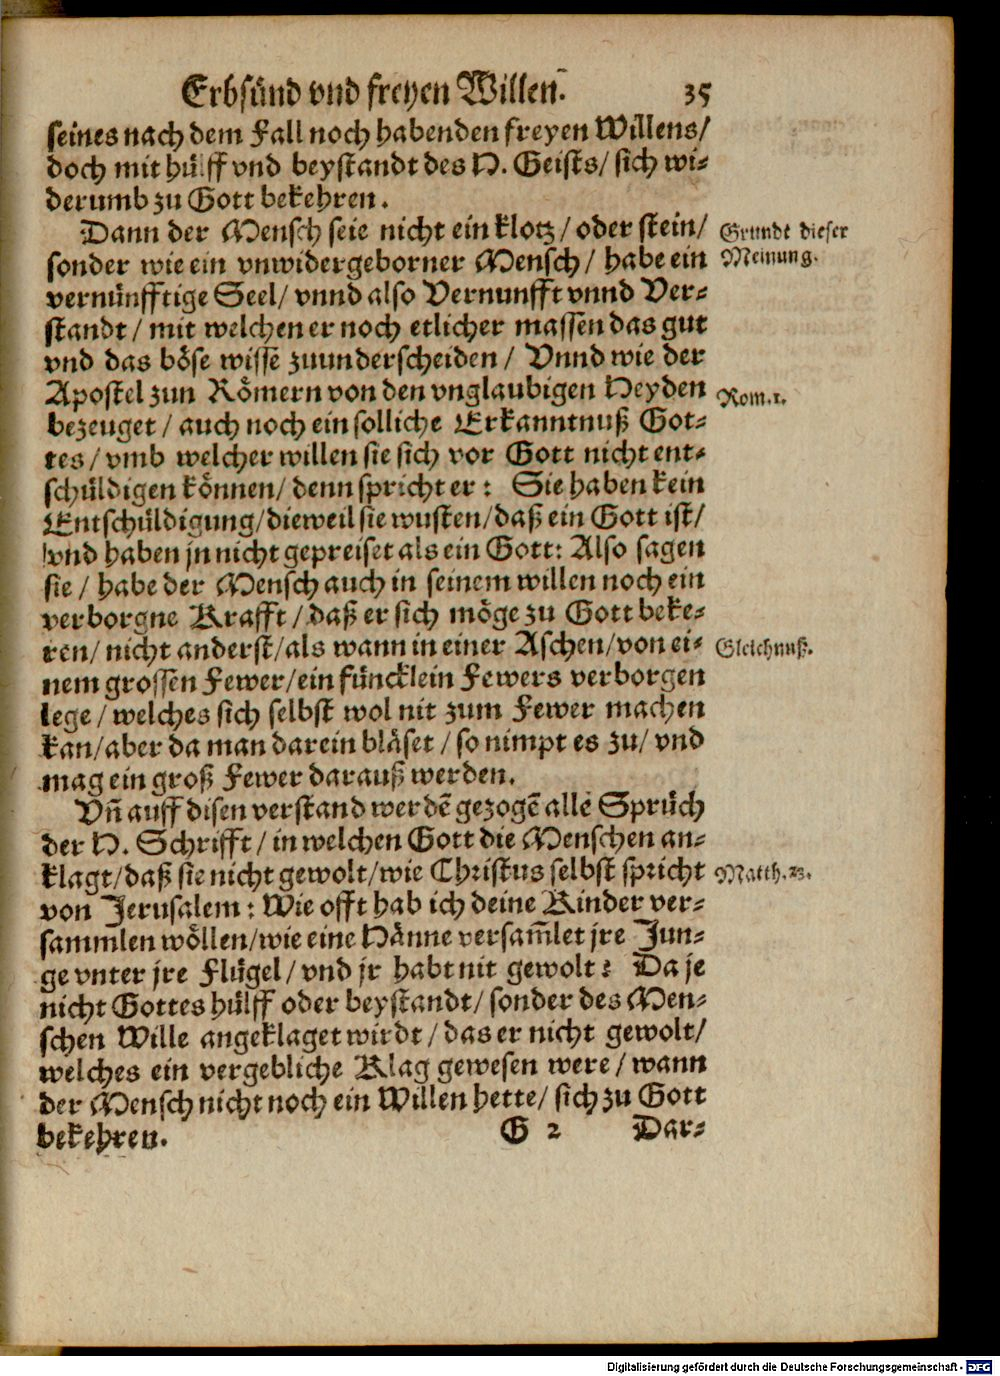 Erbsünd vnd freyen Willen. 35
seines nach dem Fall noch habenden freyen Willens/
doch mit hülff vnd beystandt des H. Geists/ sich wi-
derumb zu Gott bekehren.
Dann der Mensch seie nicht ein klotz/ oder stein/
Grundt dieser
sonder wie ein vnwidergeborner Mensch/ habe ein
Meinung.
vernünfftige Seel/ vnnd also Vernunfft vnnd Ver-
standt/ mit welchen er noch etlicher massen das gut
vnd das böse wisse zuunderscheiden/ Vnnd wie der
Apostel zun Römern von den vnglaubigen Heyden
Rom. 1.
bezeuget/ auch noch ein solliche Erkanntnuß Got-
tes/ vmb welcher willen sie sich vor Gott nicht ent-
schüldigen können/ denn spricht er: Sie haben kein
Entschüldigung/ dieweil sie wusten/ daß ein Gott ist/
vnd haben jn nicht gepreiset als ein Gott: Also sagen
sie/ habe der Mensch auch in seinem willen noch ein
verborgne Krafft/ daß er sich möge zu Gott beke-
ren/ nicht anderst/ als wann in einer Aschen/ von ei-
Gleichnuß.
nem grossen Fewer/ ein füncklein Fewers verborgen
lege/ welches sich selbst wol nit zum Fewer machen
kan/ aber da man darein bläset/ so nimpt es zu/ vnd
mag ein groß Fewer darauß werden.
Vñ auff disen verstand werdē gezogē alle Sprüch
der H. Schrifft/ in welchen Gott die Menschen an-
klagt/ daß sie nicht gewolt/ wie Christus selbst spricht
Matth. 23.
von Jerusalem: Wie offt hab ich deine Kinder ver-
sammlen wöllen/ wie eine Hänne versam̄let jre Jun-
ge vnter jre Flügel/ vnd jr habt nit gewolt? Da je
nicht Gottes hülff oder beystandt/ sonder des Men-
schen Wille angeklaget wirdt/ das er nicht gewolt/
welches ein vergebliche Klag gewesen were/ wann
der Mensch nicht noch ein Willen hette/ sich zu Gott
bekehren. G 2 Dar-
Digitalisierung gefördert durch die Deutsche Forschungsgemeinschaft - DFG